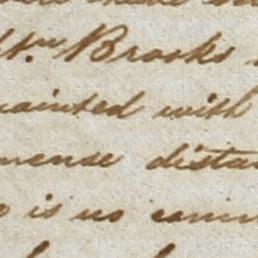 Wm Brooks
uainted with
mense dista
is no comm